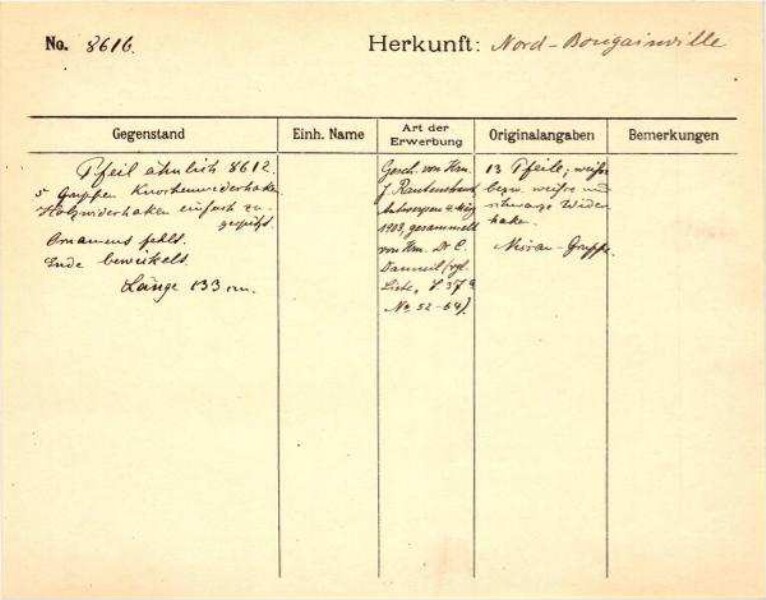 No. 8616.
Herkunft: Nord-Bougainville
Gegenstand
Einh. Name
Art der Erwerbung
Originalangaben
Bemerkungen
Pfeil ähnlich 8612.
5 Gruppen Knochenwiderhaken
Holzwiderhaken einfach zu-
gespitzt.
Ornament fehlt.
Ende bewickelt.
Länge 133 cm.
Gesch. von Hrn.
J.
Antwerpen
1903, gesammelt
von Hrn. Dr C.
(vgl.
Liste, S. 37
No 52-64)
13 Pfeile, weisse
bezw. weisse und
schwarze Wider
haken.
Nissan-Gruppe.